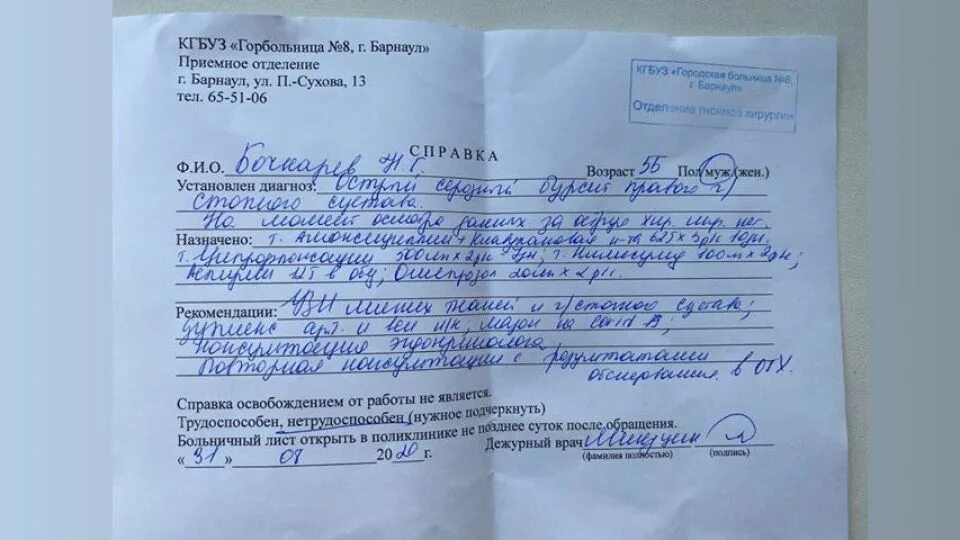 КГБУЗ «Горбольница №8, г. Барнаул»
Приемное отделение
г. Барнаул, ул. П.-Сухова, 13
тел. 65-51-06
КГБУЗ «Городская больница №8,
г. Барнаул»
Отделение гнойной хирургии
СПРАВКА
Ф.И.О. Бочкарев Н.Г. Возраст 55 Пол муж.(жен.)
Установлен диагноз: Острый серозный бурсит правого г/
стопного сустава.
На момент осмотра данных за острую хир. нет.
Назначено: т. Амоксициллин + Клавулановая к-та 625 х 3р/с
т. Ципрофлоксацин 500мг х 2р/с т. Нимесулид 100мг х 2р/с;
в обед; Омепразол 20мг х 2р/с.
Рекомендации: УЗИ мягких тканей и г/стопного сустава;
дуплекс арт. и вен н/к, мазок на Covid 19;
консультация эндокринолога
Повторная консультация с результатами
обследования в ОГХ.
Справка освобождением от работы не является.
Трудоспособен, нетрудоспособен (нужное подчеркнуть)
Больничный лист открыть в поликлинике не позднее суток после обращения.
«31» 08 2020 г. Дежурный врач
(фамилия полностью) (подпись)